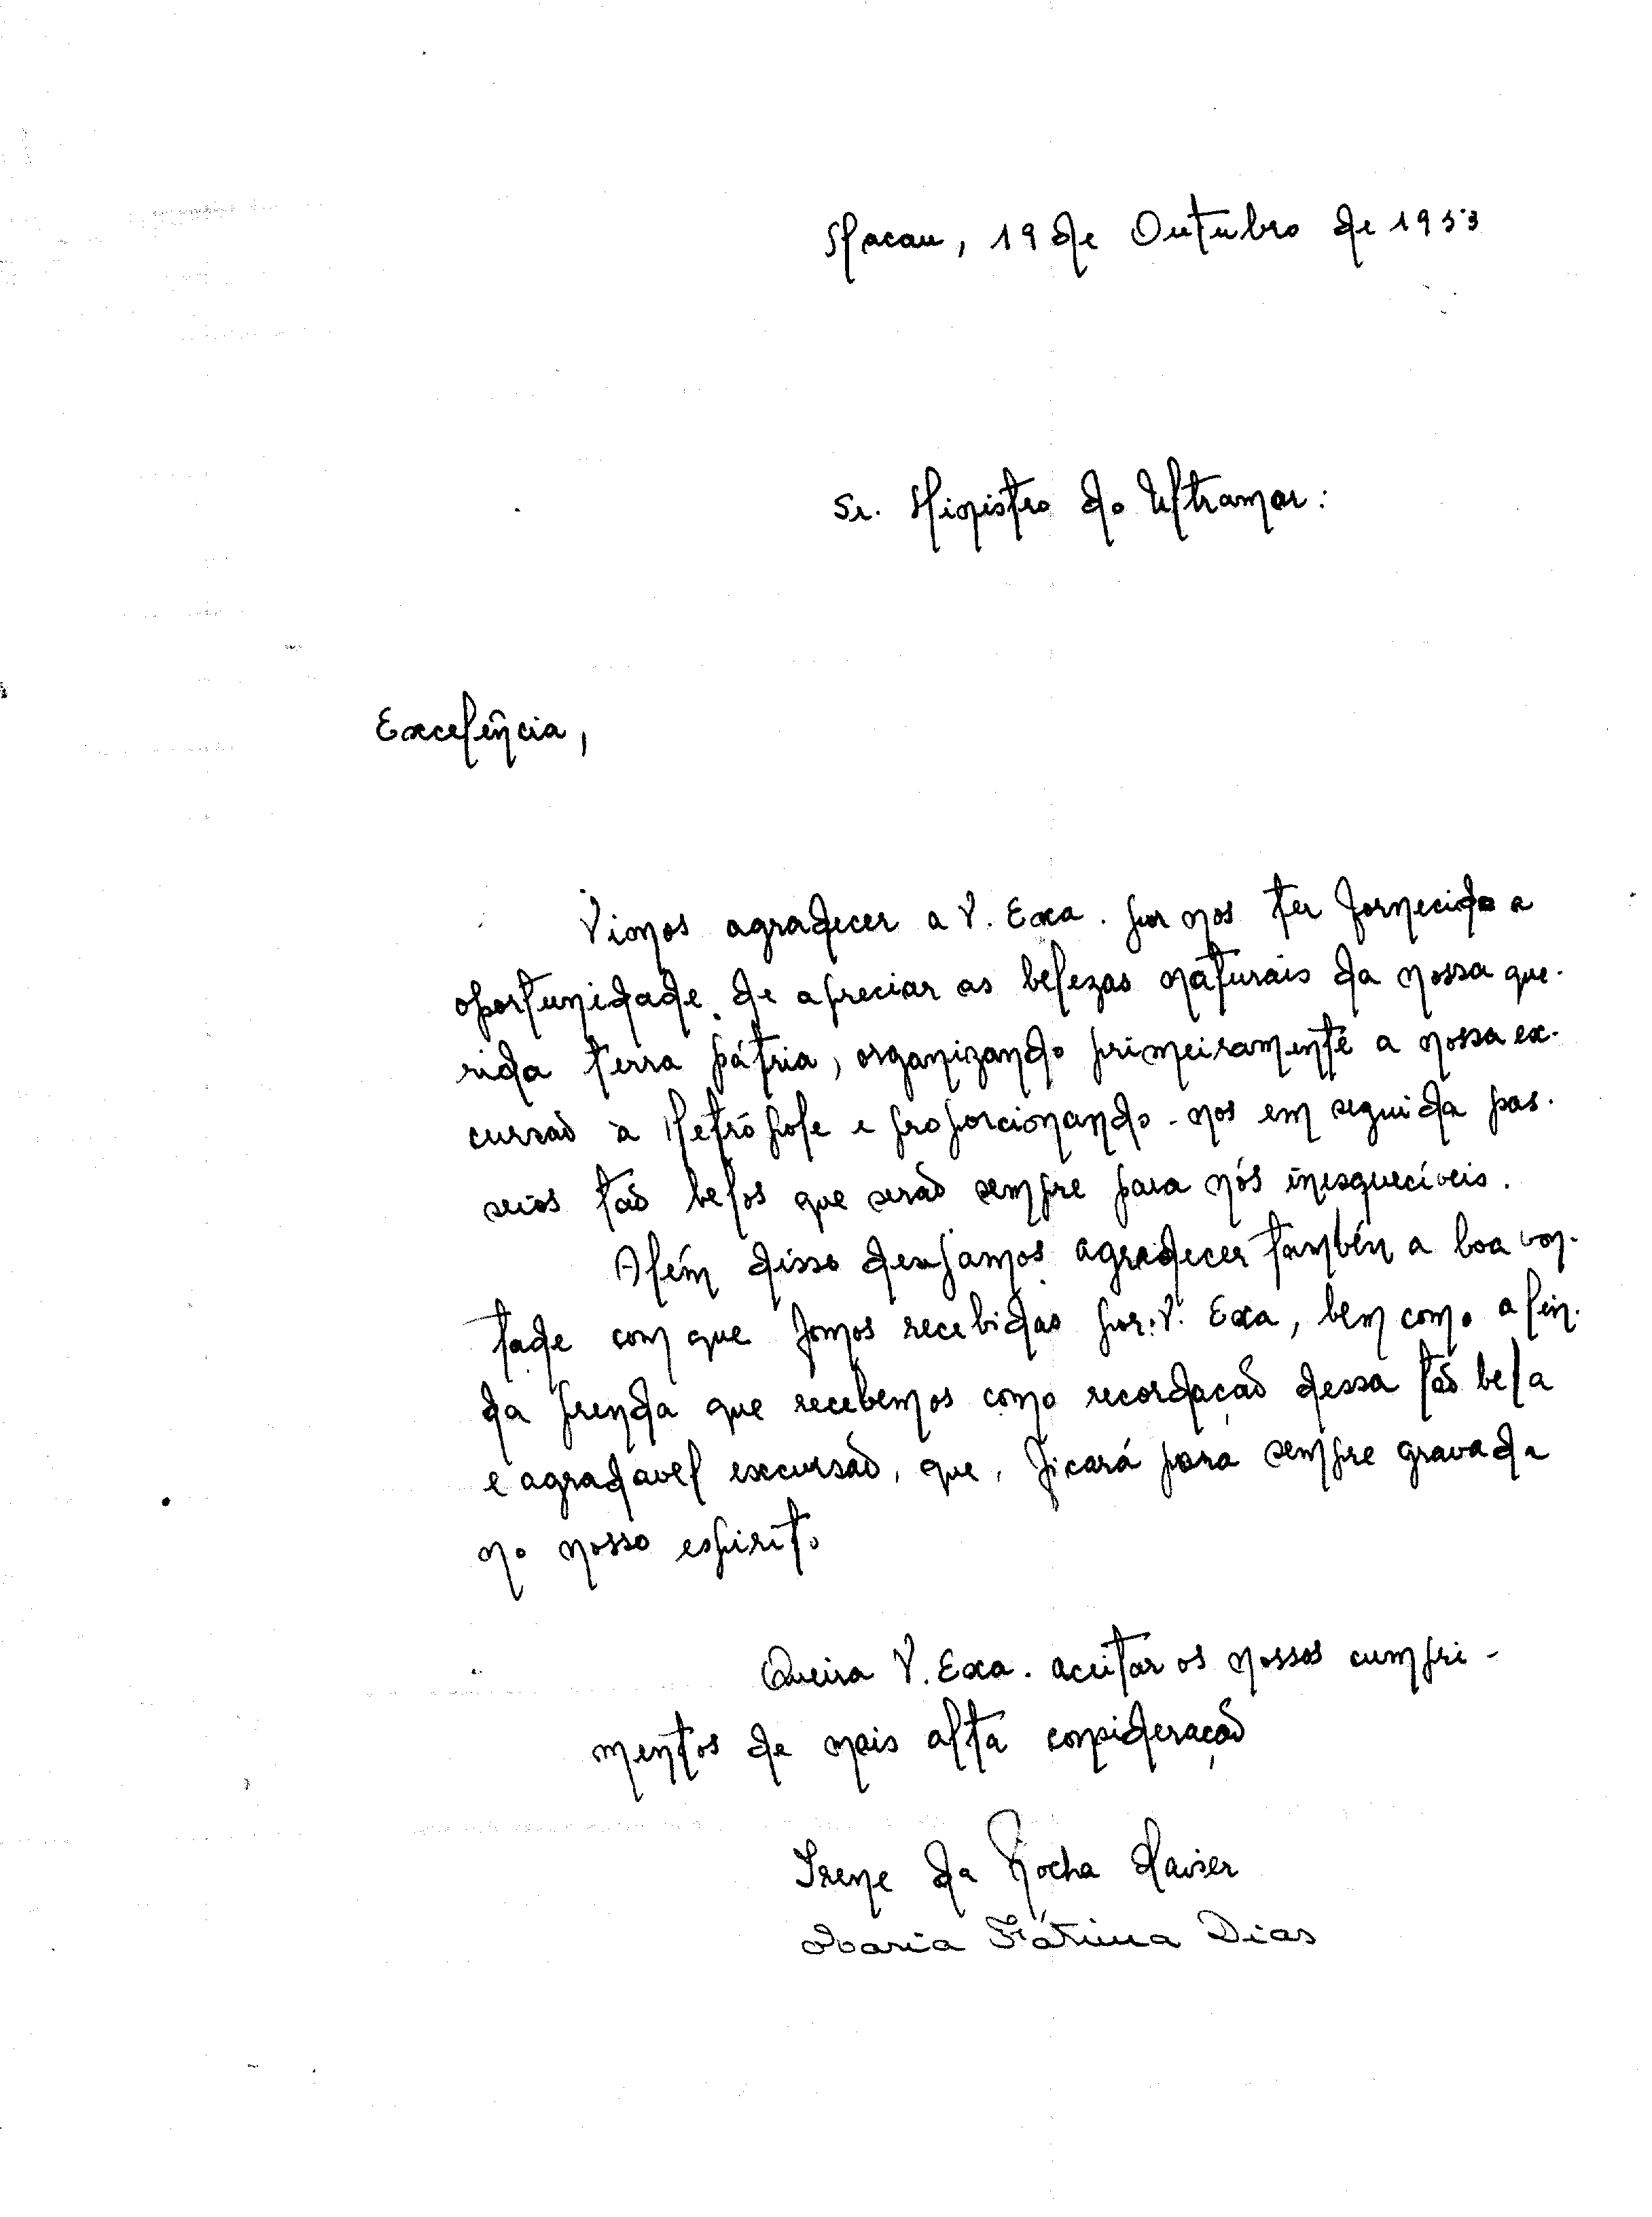 Macau, 19 de Outubro de 1953
Sr. Ministro do Ultramar:
Excelência,
Vimos agradecer a V. Exa. por nos ter fornecido a
oportunidade de apreciar as belezas naturais da nossa que-
rida terra pátria, organizando primeiramente a nossa ex-
cursão à Metrópole e proporcionando-nos em seguida pas-
seios tão belos que serão sempre para nós inesquecíveis.
Além disso desejamos agradecer também a boa von-
tade com que fomos recebidas por V. Exa, bem como a lin-
da prenda que recebemos como recordação dessa tão bela
e agradavel excursão, que, ficará para sempre gravada
no nosso espirito
Queira V. Exa. aceitar os nossos cumpri-
mentos de mais alta consideração
Irene da Rocha Xavier
Maria Fátima Dias